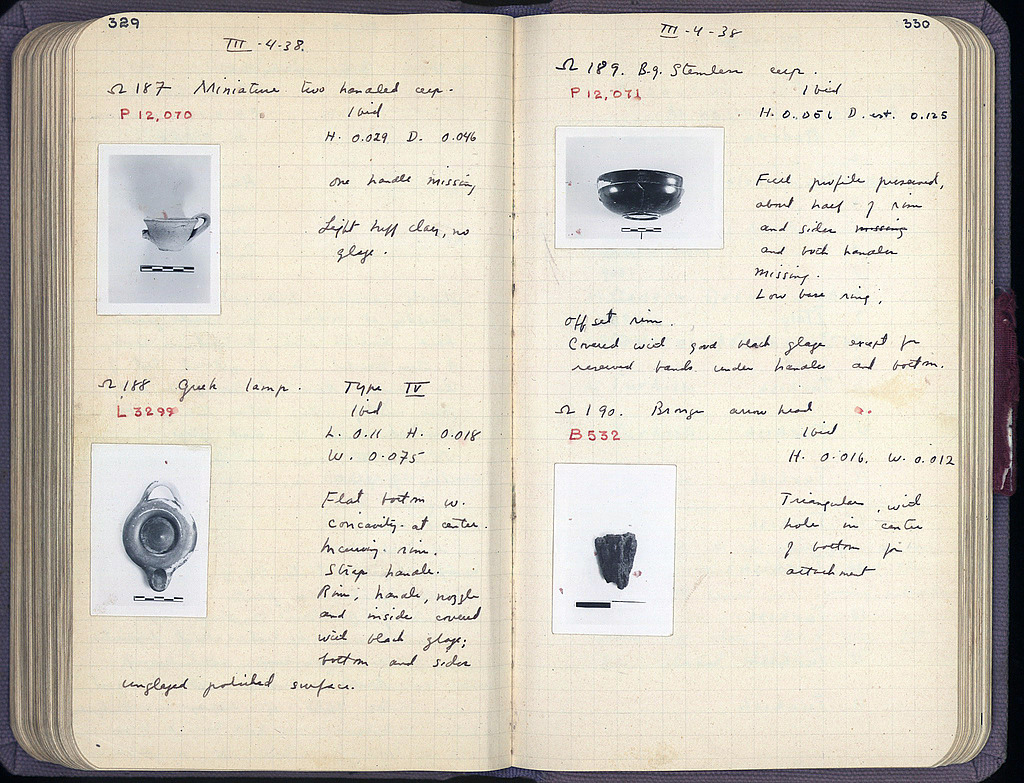 329
III-4-38.
Ω 187 Miniature two handled cup.
P 12,070
Ibid
H. 0.029 D. 0.046
one handle missing
Light buff clay, no
glaze.
Ω 188 Greek lamp. Type IV
L 3299
Ibid
L. 0.11 H. 0.018
W. 0.075
Flat bottom w.
concavity at center.
Incurving rim.
Strap handle.
Rim, handle, nozzle
and inside covered
with black glaze;
bottom and sides
unglazed polished surface.
330
III-4-38
Ω 189. B.g. Stemless cup.
P 12,071
Ibid
H. 0.056 D. est. 0.125
Full profile preserved,
about half of rim
and sides missing
and both handles
missing.
Low base ring,
offset rim.
Covered with good black glaze except for
reserved bands under handles and bottom.
Ω 190. Bronze arrow head
B 532
Ibid
H. 0.016, W. 0.012
Triangular, with
hole in center
of bottom for
attachment